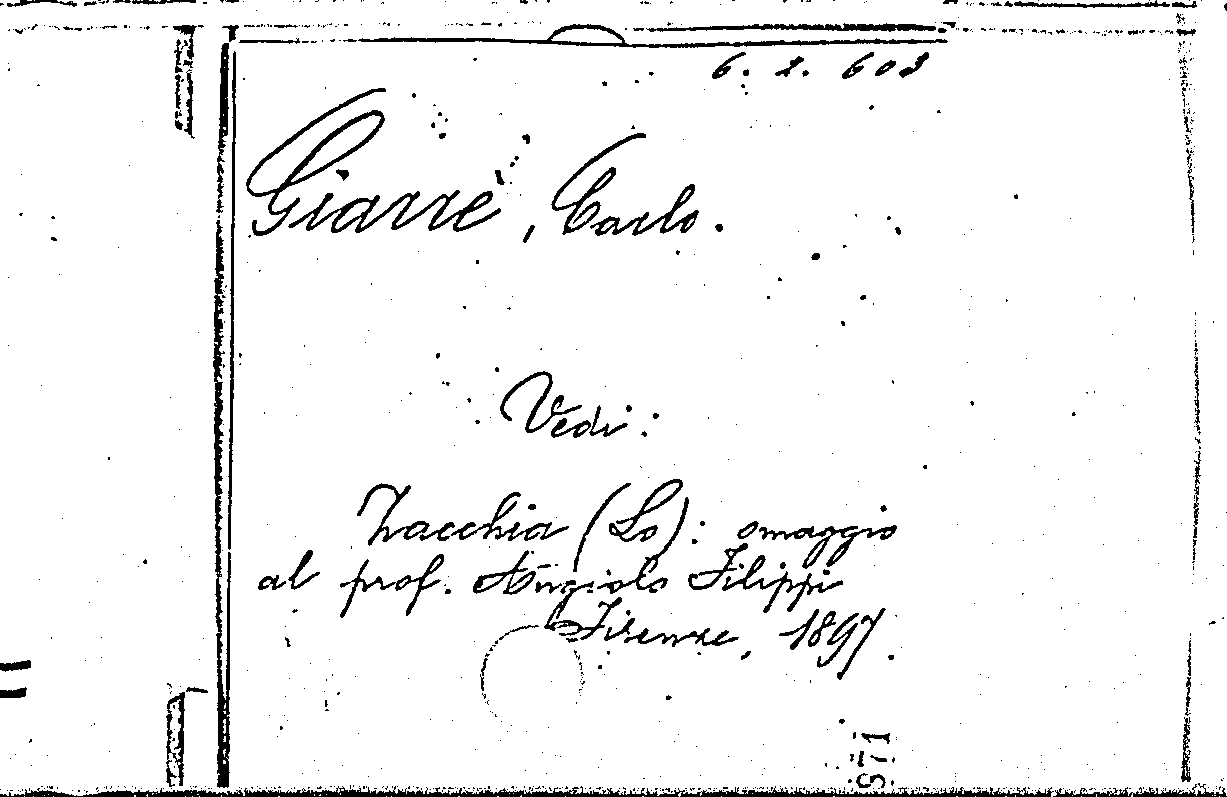 6. 2. 603
Giarrè, Carlo.
Vedi:
Zacchia (Lo): omaggio
al prof. Angiolo Filippi
Firenze, 1897.